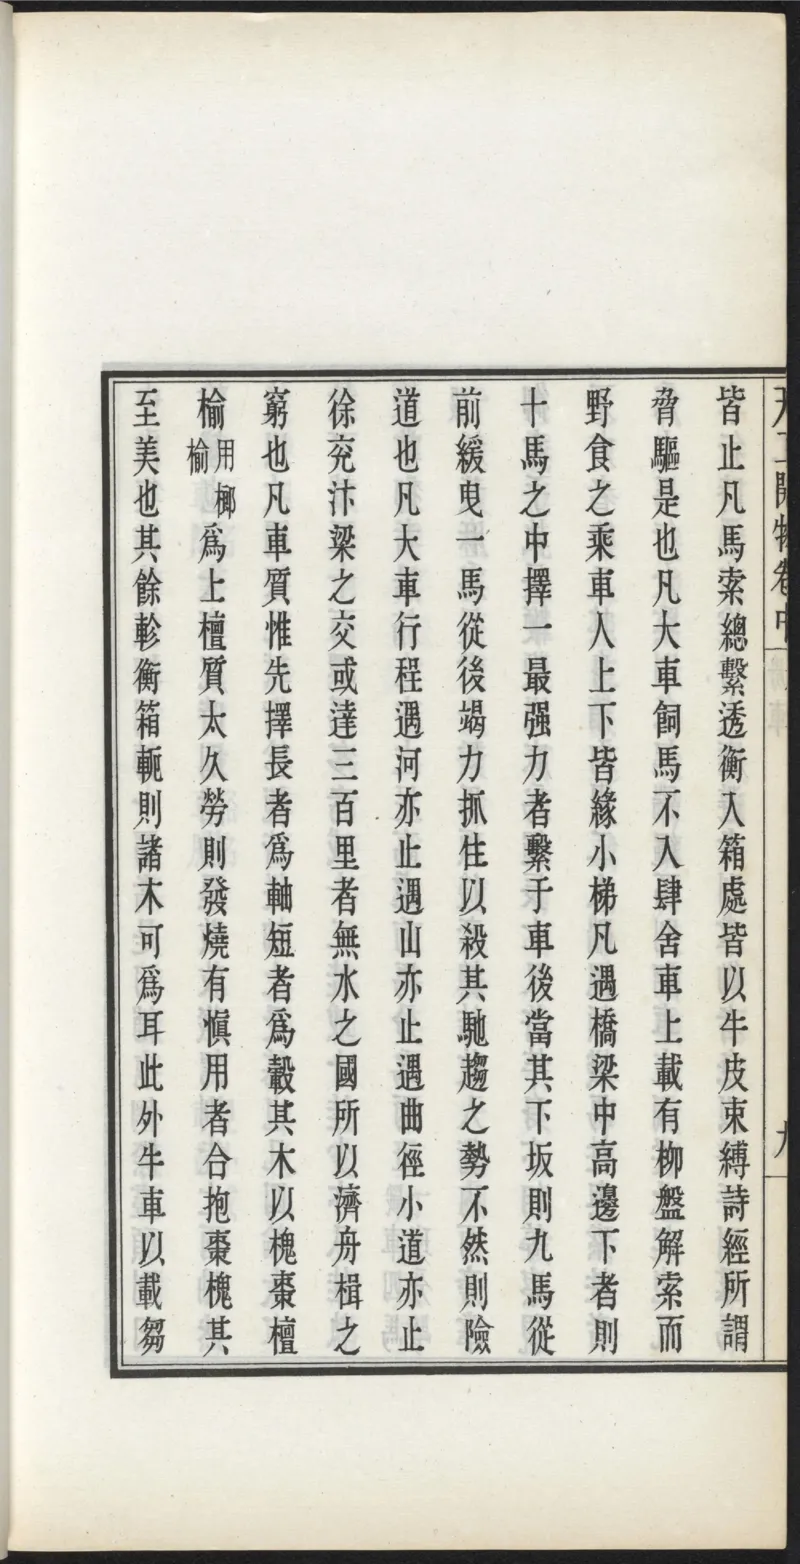 天工開物卷中
九
皆止凡馬索總繫透衡入箱處皆以牛皮束縛詩經所謂
脅驅是也凡大車飼馬不入肆舍車上載有柳盤解索而
野食之乘車人上下皆緣小梯凡遇橋梁中高邊下者則
十馬之中擇一最强力者繫于車後當其下坂則九馬從
前緩曳一馬從後竭力抓住以殺其馳趨之勢不然則險
道也凡大車行程遇河亦止遇山亦止遇曲徑小道亦止
徐兖汴梁之交或達三百里者無水之國所以濟舟楫之
窮也凡車質惟先擇長者爲軸短者爲轂其木以槐棗檀
榆用榔榆爲上檀質太久勞則發燒有愼用者合抱棗槐其
至美也其餘軫衡箱軛則諸木可爲耳此外牛車以載芻